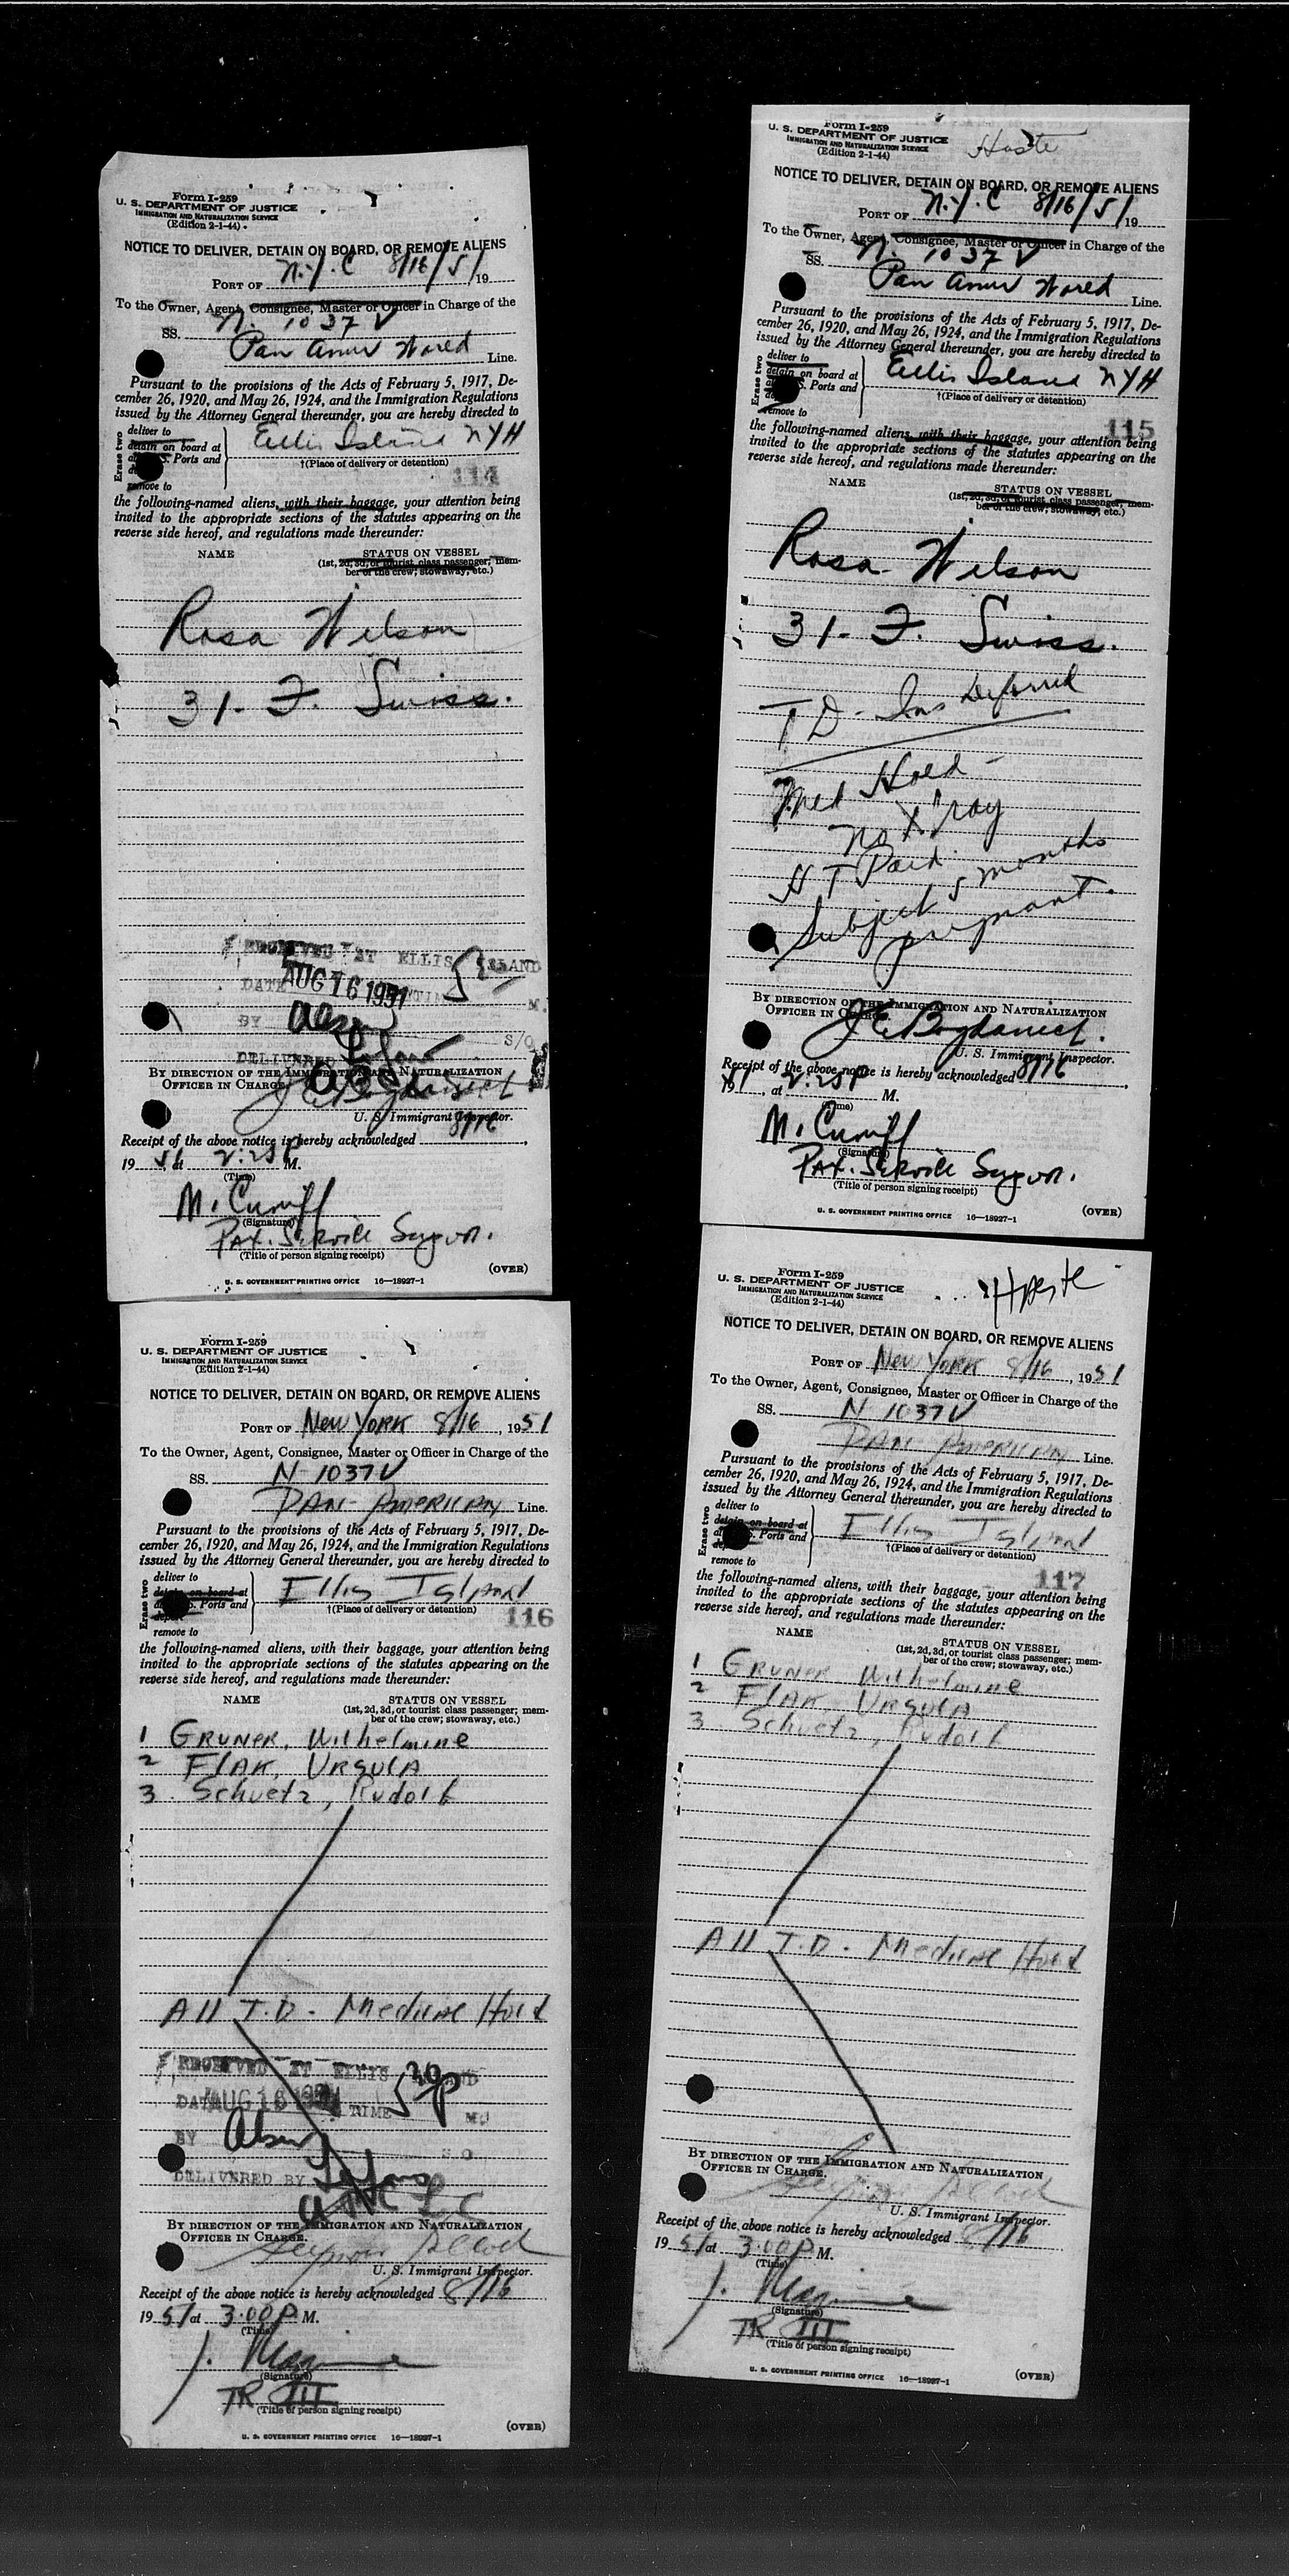 Form I-259
U. S. DEPARTMENT OF JUSTICE
IMMIGRATION AND NATURALIZATION SERVICE
(Edition 2-1-44)
NOTICE TO DELIVER, DETAIN ON BOARD, OR REMOVE ALIENS
PORT OF N.Y.C 8/16/51, 19
To the Owner, Agent, Consignee, Master or Officer in Charge of the
SS. N. 1037 V
Pan Amer Line.
Pursuant to the provisions of the Acts of February 5, 1917, De-
cember 26, 1920, and May 26, 1924, and the Immigration Regulations
issued by the Attorney General thereunder, you are hereby directed to
Erase two
deliver to
detain on board at
Ports and
remove to
Ellis Island NYH
†(Place of delivery or detention)
114
the following-named aliens, with their baggage, your attention being
invited to the appropriate sections of the statutes appearing on the
reverse side hereof, and regulations made thereunder:
NAME STATUS ON VESSEL
(1st, 2d, 3d, or tourist class passenger; mem-
ber of the crew; stowaway, etc.)
Rosa Wilson
31- F. Swiss.
RECEIVED AT ELLIS ISLAND
DATE AUG 16 1951 TIME 5 M.
BY S/O
DELIVERED
BY DIRECTION OF THE IMMIGRATION AND NATURALIZATION
OFFICER IN CHARGE.
U. S. Immigrant Inspector.
Receipt of the above notice is hereby acknowledged 8/16,
19 51, at 2:25 P M.
(Time)
(Signature)
Pax. Service Supvr.
(Title of person signing receipt)
(OVER)
U. S. GOVERNMENT PRINTING OFFICE 16—18927-1
Form I-259
U. S. DEPARTMENT OF JUSTICE
IMMIGRATION AND NATURALIZATION SERVICE
(Edition 2-1-44)
NOTICE TO DELIVER, DETAIN ON BOARD, OR REMOVE ALIENS
PORT OF N.Y.C 8/16/51 19
To the Owner, Agent, Consignee, Master or Officer in Charge of the
SS. N. 1037 V
Pan Amer Line.
Pursuant to the provisions of the Acts of February 5, 1917, De-
cember 26, 1920, and May 26, 1924, and the Immigration Regulations
issued by the Attorney General thereunder, you are hereby directed to
Erase two
deliver to
detain on board at
S. Ports and
remove to
Ellis Island NYH
†(Place of delivery or detention)
115
the following-named aliens, with their baggage, your attention being
invited to the appropriate sections of the statutes appearing on the
reverse side hereof, and regulations made thereunder:
NAME STATUS ON VESSEL
(1st, 2d, 3d, or tourist class passenger; mem-
ber of the crew; stowaway, etc.)
Rosa Wilson
31- F. Swiss.
TD - Ins Deferred
Med Hold -
no X ray
HT Paid.
Subject 5 months
pregnant.
BY DIRECTION OF THE IMMIGRATION AND NATURALIZATION
OFFICER IN CHARGE.
U. S. Immigrant Inspector.
Receipt of the above notice is hereby acknowledged 8/16,
19 51, at 2:25 P M.
(Time)
(Signature)
Pax. Service Supvr.
(Title of person signing receipt)
U. S. GOVERNMENT PRINTING OFFICE 16—18927-1
(OVER)
Form I-259
U. S. DEPARTMENT OF JUSTICE
IMMIGRATION AND NATURALIZATION SERVICE
(Edition 2-1-44)
NOTICE TO DELIVER, DETAIN ON BOARD, OR REMOVE ALIENS
PORT OF New York 8/16, 1951
To the Owner, Agent, Consignee, Master or Officer in Charge of the
SS. N-1037V
PAN-AMERICAN Line.
Pursuant to the provisions of the Acts of February 5, 1917, De-
cember 26, 1920, and May 26, 1924, and the Immigration Regulations
issued by the Attorney General thereunder, you are hereby directed to
Erase two
deliver to
detain on board at
Ports and
remove to
Ellis Island
†(Place of delivery or detention)
116
the following-named aliens, with their baggage, your attention being
invited to the appropriate sections of the statutes appearing on the
reverse side hereof, and regulations made thereunder:
NAME STATUS ON VESSEL
(1st, 2d, 3d, or tourist class passenger; mem-
ber of the crew; stowaway, etc.)
1 GRUNER, Wilhelmine
2 FLAK, URSULA
3 Schuetz, Rudolf
All T.D. - Medical Hold
RECEIVED AT ELLIS ISLAND
DATE AUG 16 1951 TIME 5 30 P M
BY S O
DELIVERED BY
BY DIRECTION OF THE IMMIGRATION AND NATURALIZATION
OFFICER IN CHARGE.
U. S. Immigrant Inspector.
Receipt of the above notice is hereby acknowledged 8/16
19 51 at 3:00 P M.
(Time)
(Signature)
TR III
(Title of person signing receipt)
(OVER)
U. S. GOVERNMENT PRINTING OFFICE 16—18927-1
Form I-259
U. S. DEPARTMENT OF JUSTICE
IMMIGRATION AND NATURALIZATION SERVICE
(Edition 2-1-44)
NOTICE TO DELIVER, DETAIN ON BOARD, OR REMOVE ALIENS
PORT OF New York 8/16, 1951
To the Owner, Agent, Consignee, Master or Officer in Charge of the
SS. N 1037V
PAN-AMERICAN Line.
Pursuant to the provisions of the Acts of February 5, 1917, De-
cember 26, 1920, and May 26, 1924, and the Immigration Regulations
issued by the Attorney General thereunder, you are hereby directed to
Erase two
deliver to
detain on board at
Ports and
remove to
Ellis Island
†(Place of delivery or detention)
117
the following-named aliens, with their baggage, your attention being
invited to the appropriate sections of the statutes appearing on the
reverse side hereof, and regulations made thereunder:
NAME STATUS ON VESSEL
(1st, 2d, 3d, or tourist class passenger; mem-
ber of the crew; stowaway, etc.)
1 GRUNER Wilhelmine
2 FLAK URSULA
3 Schuetz, Rudolf
All T.D. - Medical Hold
BY DIRECTION OF THE IMMIGRATION AND NATURALIZATION
OFFICER IN CHARGE.
U. S. Immigrant Inspector.
Receipt of the above notice is hereby acknowledged 8/16
19 51 at 3:00 P M.
(Time)
(Signature)
TR III
(Title of person signing receipt)
U. S. GOVERNMENT PRINTING OFFICE 16—18927-1
(OVER)